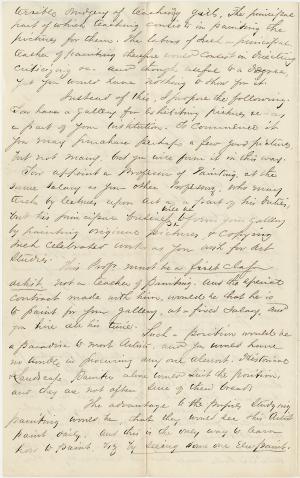 terible drudgery of teaching girls, the principal
part of which teaching consists in painting the
pictures for them. The labors of such a principal
teacher of painting therefore would consist in directing
criticizing &c. and though useful to a degree,
yet you would have nothing to show for it.
Instead of this, I propose the following.
You have a gallery for exhibiting pictures &c as
a part of your Institution. To commence it
you may purchase perhaps a few good pictures,
but not many, but you will form it in this way.
You appoint a Professor of Painting, at the
same salary as your other Professors, who may
teach by lectures upon Art as a part of his duties,
but his principal business will be to form your gallery
by painting original pictures & copying
such celebrated works as you wish for Art
Studies.
This Profr. must be a first class
artist, not a teacher of painting. And the special
contract made with him, would be that he is
to paint for your gallery, at a fixed salary, and
you hire all his time. Such a position would be
a paradise to most Artists, and you would have
no trouble in procuring any one almost. Historical
& Landscape Painters alone would suit the position,
and they are not often sure of their bread.
The advantage to the pupils studying
painting would be, that they would see this Artist
paint daily, and this is the only way to learn
how to paint, viz by seeing some one else paint.